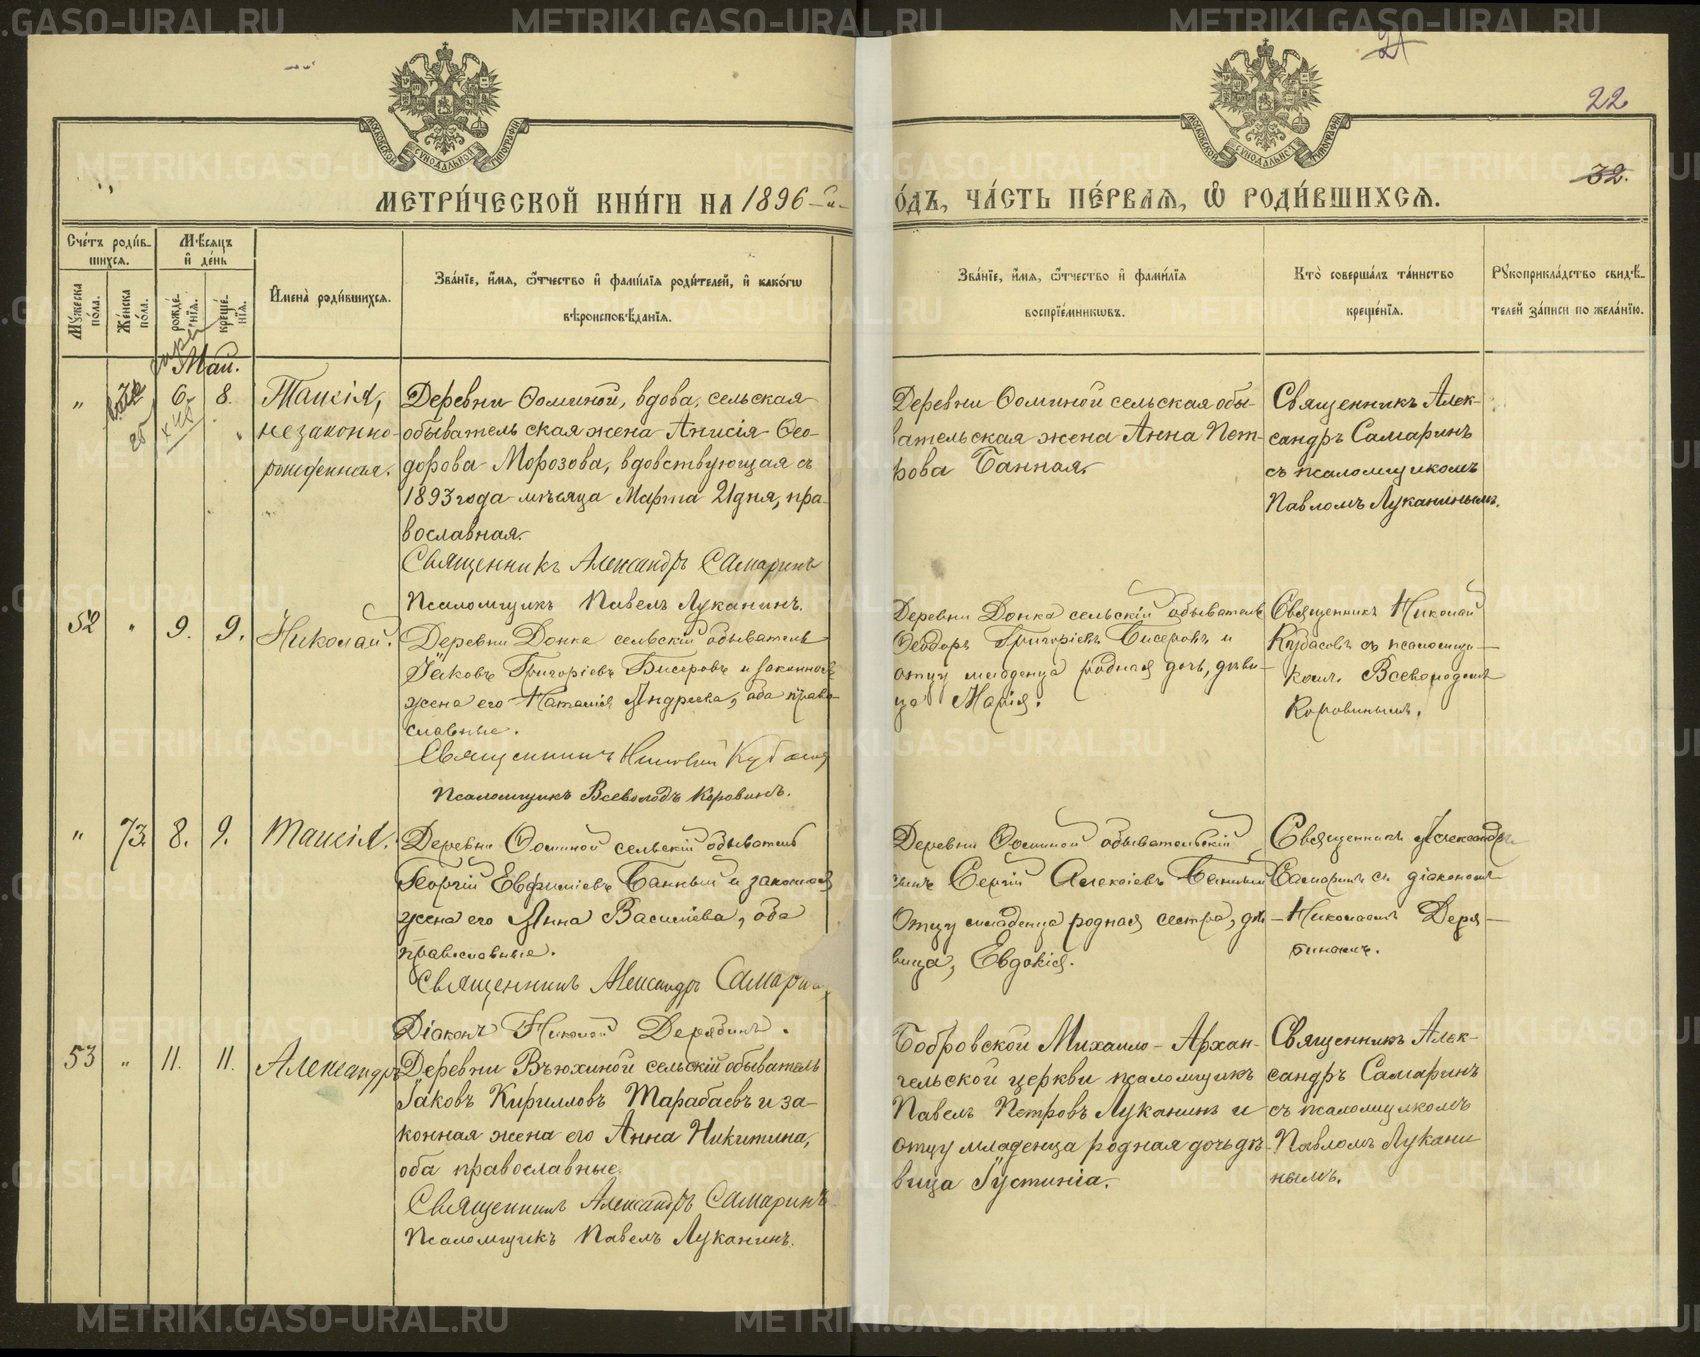 21
22
32.
МОСКОВСКОЙ СѴНОДАЛЬНОЙ ТИПОГРАФІИ
МОСКОВСКОЙ СѴНОДАЛЬНОЙ ТИПОГРАФІИ
МЕТРИ́ЧЕСКОЙ КНИ́ГИ НА 1896-й-
О́ДЪ, ЧА́СТЬ ПЕ́РВАѦ, Ѡ҆ РОДИ́ВШИХСѦ.
Сче́тъ роди́в-
шихсѧ.
Мꙋ́жеска по́ла.
Же́нска по́ла.
Мѣ́сѧцъ
и҆ де́нь
рожде́-нїѧ.
креще́-нїѧ.
И҆мена̀ роди́вшихсѧ.
Зва́нїе, и҆́мѧ, ѻ҆́тчество и҆ фами́лїѧ роди́телей, и҆ како́гѡ
вѣроисповѣ́данїѧ.
Зва́нїе, и҆́мѧ, ѻ҆́тчество и҆ фами́лїѧ
воспрїе́мникѡвъ.
Кто̀ соверша́лъ та́инство
креще́нїѧ.
Рꙋкоприкла́дство свидѣ́-
телей за́писи по жела́нїю.
Май.
" 6. 8. Таисія,
незаконно-
рожденная.
Деревни Ѳоминой, вдова, сельская
обывательская жена Анисія Ѳео-
дорова Морозова, вдовствующая съ
1893 года мѣсяца Марта 21 дня, пра-
вославная.
Священникъ Александръ Самаринъ
Псаломщикъ Павелъ Луканинъ.
Деревни Ѳоминой сельская обы-
вательская жена Анна Пет-
рова Банная.
Священникъ Алек-
сандръ Самаринъ
съ псаломщикомъ
Павломъ Луканинымъ.
52 " 9. 9. Николай.
Деревни Донка сельскій обыватель
Іаковъ Григоріевъ Бисеровъ и законная
жена его Наталія Андреева, оба право-
славные.
Священникъ Николай Кубасов
Псаломщикъ Всеволодъ Коровинъ.
Деревни Донка сельскій обыватель
Ѳеодоръ Григоріевъ Бисеровъ и
отцу младенца родная дочь, дѣви-
ца Марія.
Священникъ Николай
Кубасовъ съ псаломщи-
комъ Всеволодомъ
Коровинымъ.
" 73. 8. 9. Таисія.
Деревни Ѳоминой сельскій обыватель
Георгій Евфиміевъ Банный и законная
жена его Анна Василіева, оба
православные.
Священникъ Александръ Самарин
Діаконъ Николай Дерябинъ.
Деревни Ѳоминой обывательскій
сынъ Сергій Алексіевъ Банный
Отцу младенца родная сестра, дѣ-
вица, Евдокія.
Священникъ Александръ
Самаринъ съ діакономъ
Николаемъ Деря-
бинымъ.
53 " 11. 11. Александръ
Деревни Вьюхиной сельскій обыватель
Іаковъ Кирилловъ Тарабаевъ и за-
конная жена его Анна Никитина,
оба православные.
Священникъ Александръ Самаринъ
Псаломщикъ Павелъ Луканинъ.
Бобровской Михаило-Архан-
гельской церкви псаломщикъ
Павелъ Петровъ Луканинъ и
отцу младенца родная дочь дѣ-
вица Іустинія.
Священникъ Алек-
сандръ Самаринъ
съ псаломщикомъ
Павломъ Лукани
нымъ.
METRIKI.GASO-URAL.RU